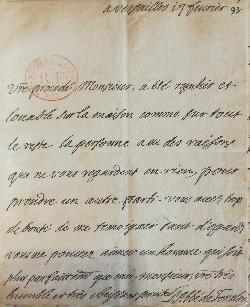 a versailles 17 fevrier 93.
R F
Vre procedé, Monsieur, a eté regulier et
louable sur la maison comme sur tout
le reste la personne a eu des raisons
qui ne vous regardent en rien, pour
prendre un autre parti. vous avez trop
de bonté de me temoigner tant d'egards
vous ne pouvez aimer un homme qui soit
plus parfaitemt que moi, monsieur, vre tres
humble et tres obeissant serviteur L'Abbé de